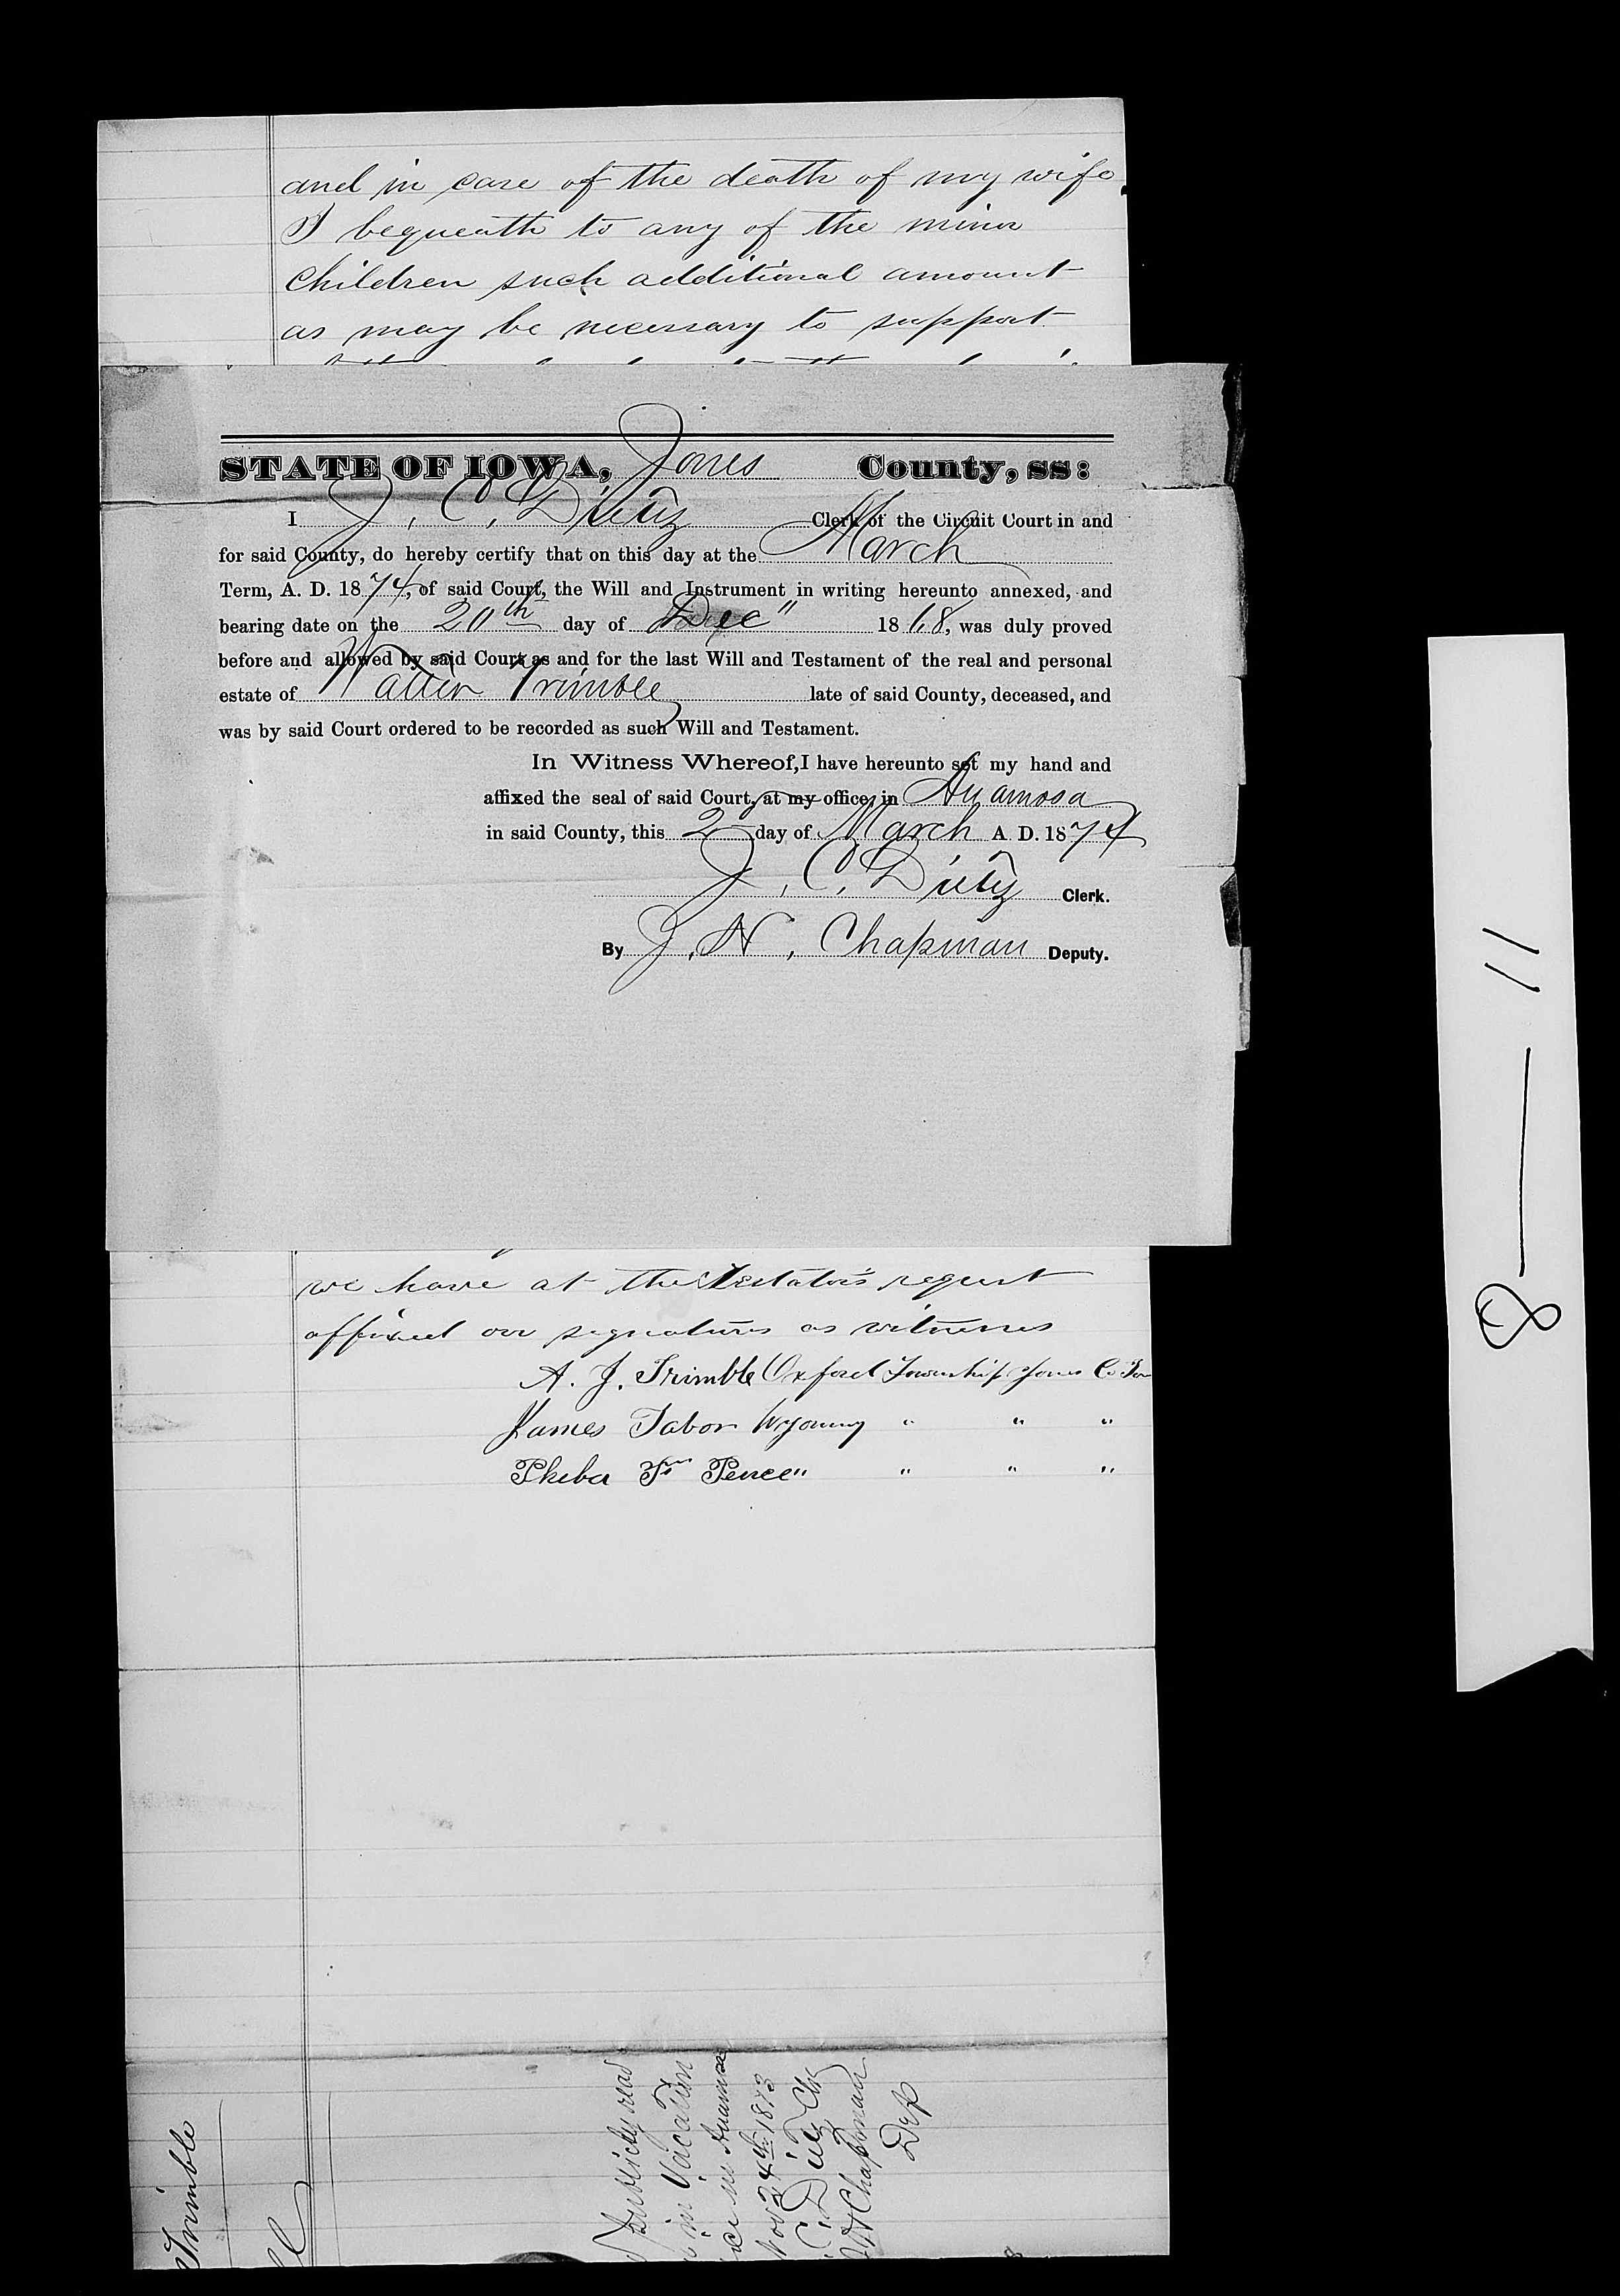 and in case of the death of my wife
I bequeath to any of the minor
children such additional amount
as may be necessary to support
STATE OF IOWA, Jones County, ss:
I J. C. Dietz Clerk of the Circuit Court in and
for said County, do hereby certify that on this day at the March
Term, A. D. 1874, of said Court, the Will and Instrument in writing hereunto annexed, and
bearing date on the 20th day of Dec" 1868, was duly proved
before and allowed by said Court as and for the last Will and Testament of the real and personal
estate of Walter Trimble late of said County, deceased, and
was by said Court ordered to be recorded as such Will and Testament.
In Witness Whereof, I have hereunto set my hand and
affixed the seal of said Court, at my office, in Anamosa
in said County, this 2 day of March A. D. 1874
J. C. Dietz Clerk.
By J. N. Chapman Deputy.
we have at the Testator's request
affixed our signatures as witnesses
A. J. Trimble Oxford Township Jones Co Iow
James Tabor Wyoming " " "
Pheba Pence " " " "
Trimble
publicly read
in Vacation
in Anamosa
Nov 24th 1873
C. Dietz Clk
N Chapman
Dep
8 — 11